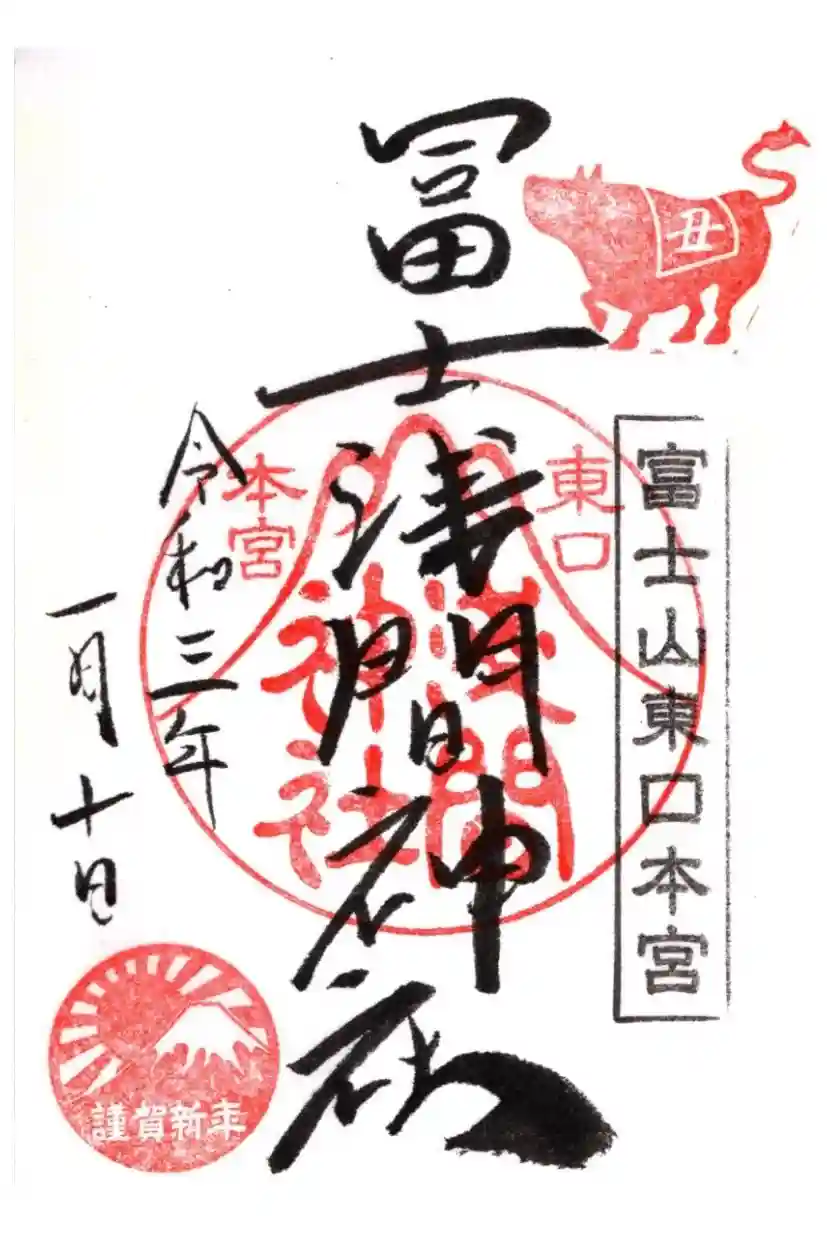 丑
富士山東口本宮
冨士浅間神社
東口
本宮
浅間
神社
令和三年
一月十日
謹賀新年